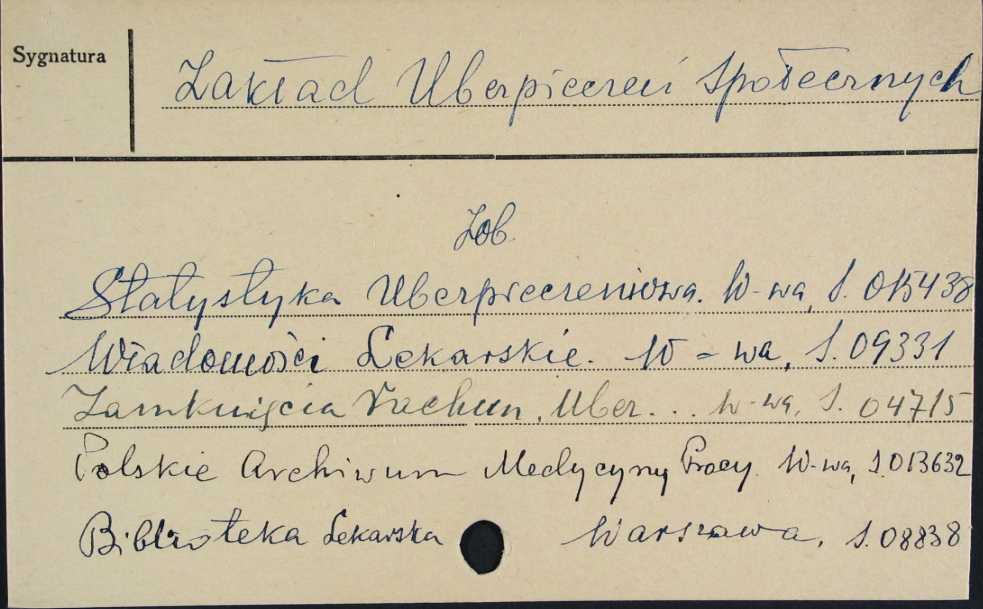 Sygnatura
Zakład Ubezpieczeń Społecznych
Zob.
Statystyka Ubezpieczeniowa. W-wa, S. 015438
Wiadomości Lekarskie. W-wa, S. 09331
Zamknięcia Rachun. Ubez... W-wa, S. 04715
Polskie Archiwum Medycyny Pracy. W-wa, S. 013632
Biblioteka Lekarska Warszawa, S. 08838